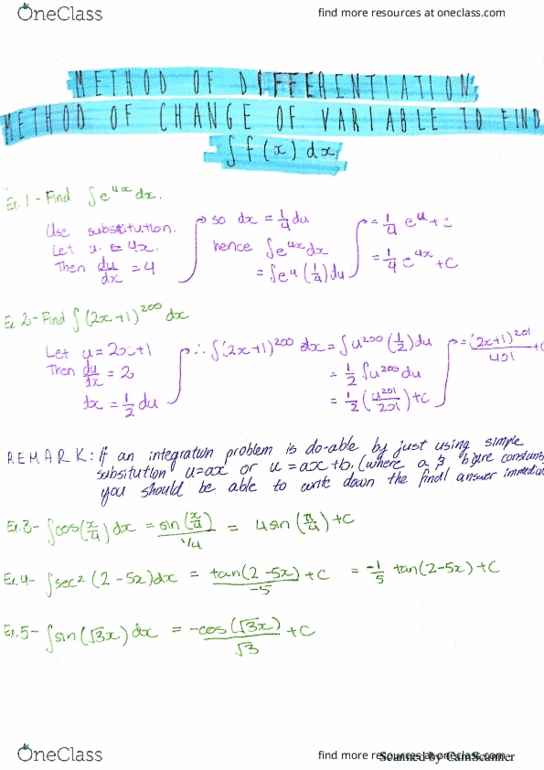 OneClass
find more resources at oneclass.com
METHOD OF DIFFERENTIATION
METHOD OF CHANGE OF VARIABLE TO FIND
∫f(x)dx
Ex.1 - Find ∫e^4x dx.
Use substitution.
Let u = 4x.
Then du/dx = 4
so dx = 1/4 du
hence ∫e^4x dx
= ∫e^u (1/4) du
= 1/4 e^u + c
= 1/4 e^4x + c
Ex 2 - Find ∫(2x+1)^200 dx
Let u = 2x+1
Then du/dx = 2
dx = 1/2 du
∴ ∫(2x+1)^200 dx = ∫u^200 (1/2) du
= 1/2 ∫u^200 du
= 1/2 (u^201/201) + c
= (2x+1)^201
REMARK: If an integration problem is do-able by just using simple
subsitution u=ax or u=ax+b, (where a & b are constants
you should be able to write down the final answer
Ex.3 - ∫cos(x/4) dx = sin(x/4)/1/4 = 4sin( /4) + C
Ex.4 - ∫sec² (2-5x)dx = tan(2-5x)/-5 + C = -1/5 tan(2-5x) + C
Ex.5 - ∫sin(√3x) dx = -cos(√3x)/√3 + C
OneClass
find more resources at oneclass.com
Scanned by CamScanner